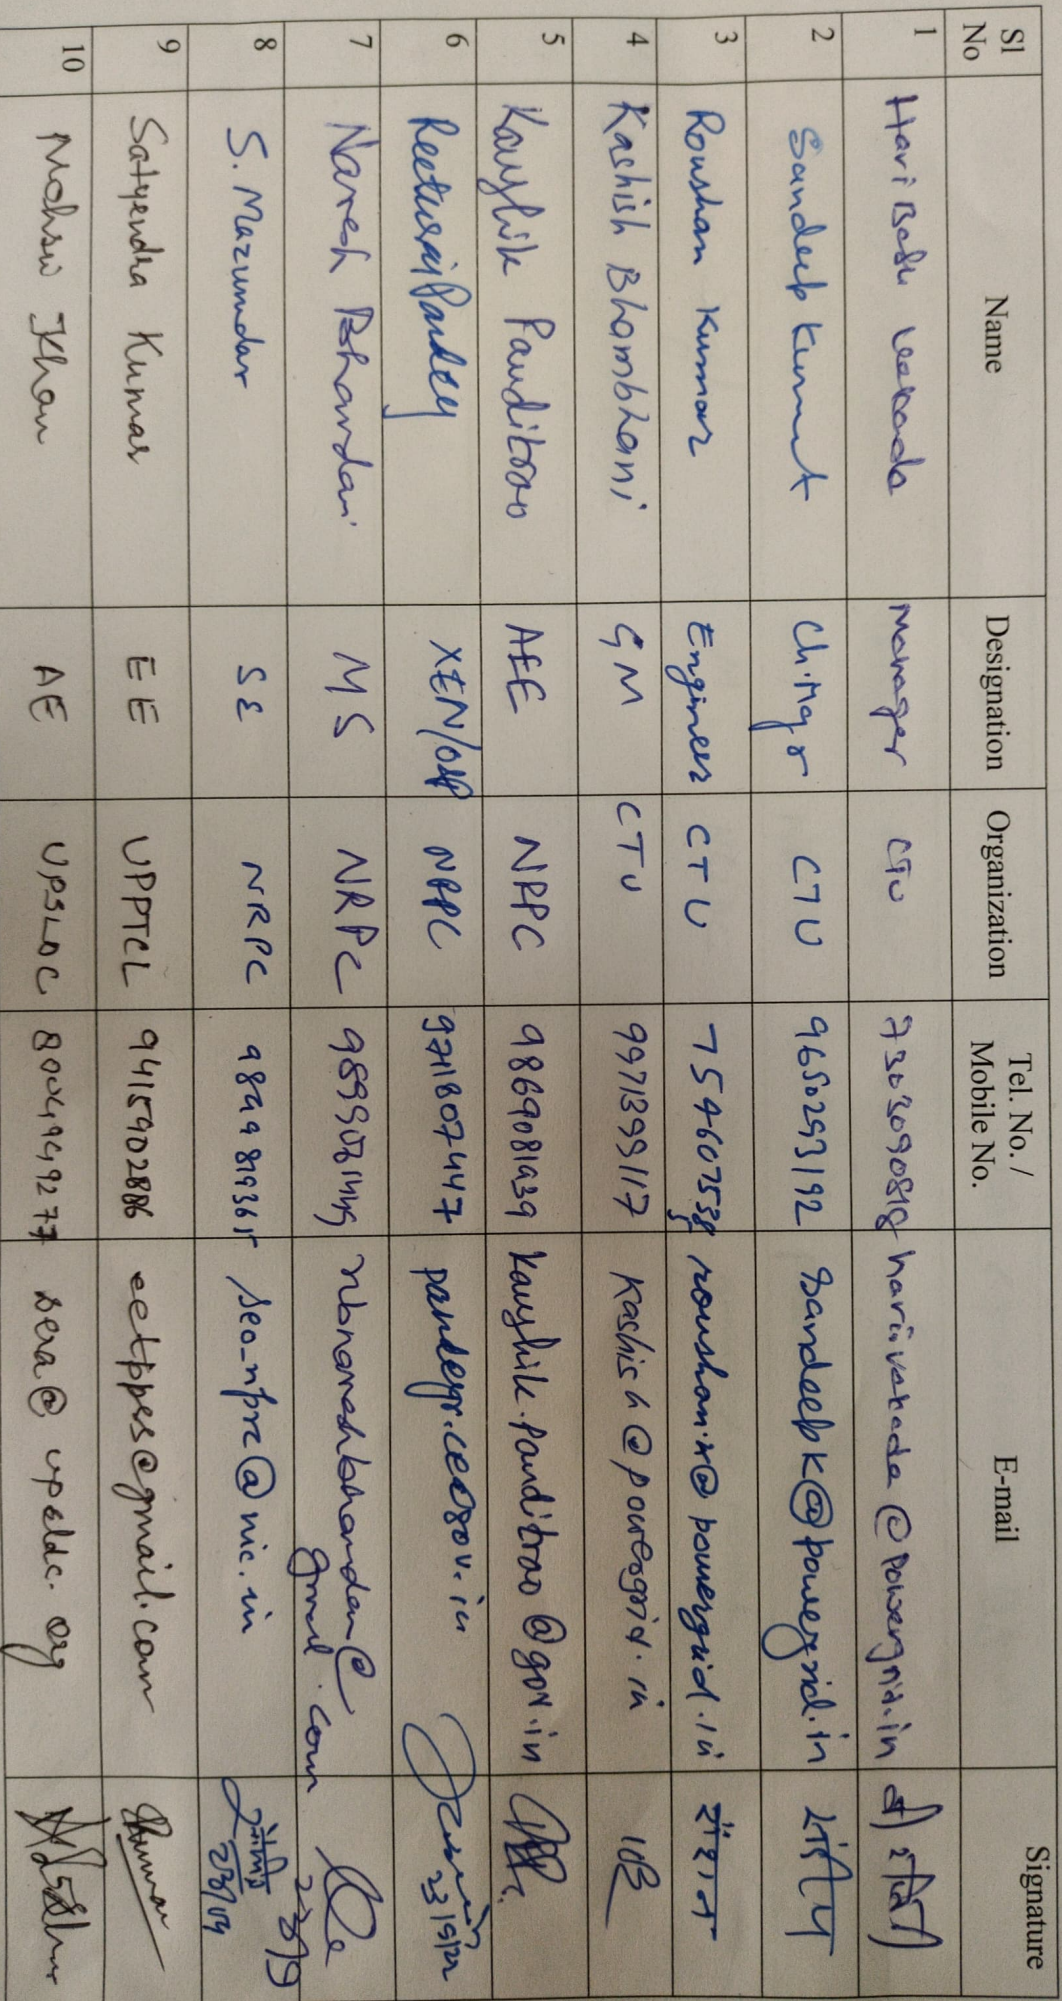 Sl No Name Designation Organization Tel. No./ Mobile No. E-mail Signature
1 Hari Babu Manager CTU 7303090818 @powergrid.in
2 Sandeep Kumar Ch.Mgr CTU 9650293192 sandeepk@powergrid.in
3 Roushan Kumar Engineer CTU roushan.k@powergrid.in
4 Kashish Bhambhani GM CTU 9971399117 kashish@powergrid.in
5 Kaushik Panditrao AEE NRPC 9869081939 kaushik.panditrao@gov.in
6 Reeturaj Pandey XEN/ NRPC 9718074447 23/9/22
7 Naresh Bhandari MS NRPC nbnareshbhandari@
gmail.com 23/9
8 S. Mazumdar SE NRPC seo-nrpc@nic.in
9 Satyendra Kumar EE UPPTCL eetppes@gmail.com
10 Mohsin Khan AE UPSLDC 8004949277 sera@upsldc.org